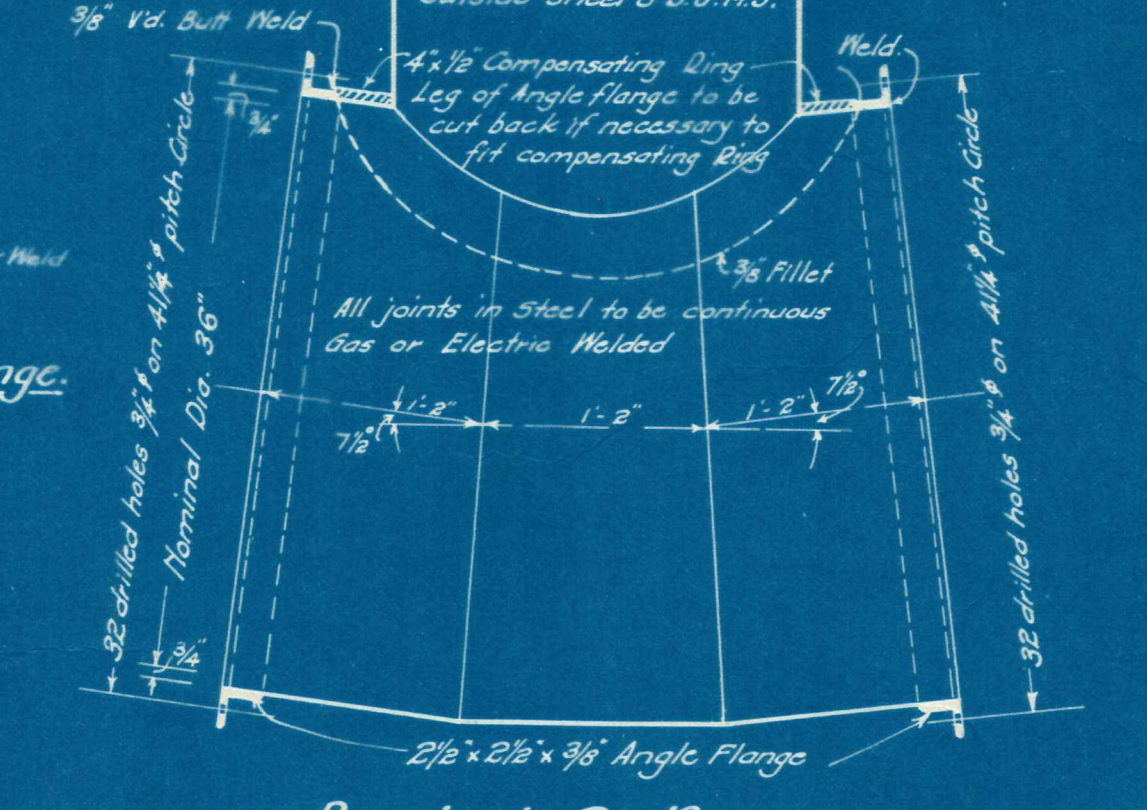 3/8" V'd. Butt Weld
Weld.
4" x 1/2" Compensating Ring
Leg of Angle flange to be
cut back if necessary to
fit compensating Ring
3/4"
Weld
3/8" Fillet
All joints in Steel to be continuous
Gas or Electric Welded
nge.
32 drilled holes 3/4"φ on 41 1/4"φ pitch Circle
Nominal Dia. 36"
1'-2"
1'-2"
1'-2"
7 1/2°
7 1/2°
32 drilled holes 3/4"φ on 41 1/4"φ pitch Circle
3/4"
2 1/2" x 2 1/2" x 3/8" Angle Flange